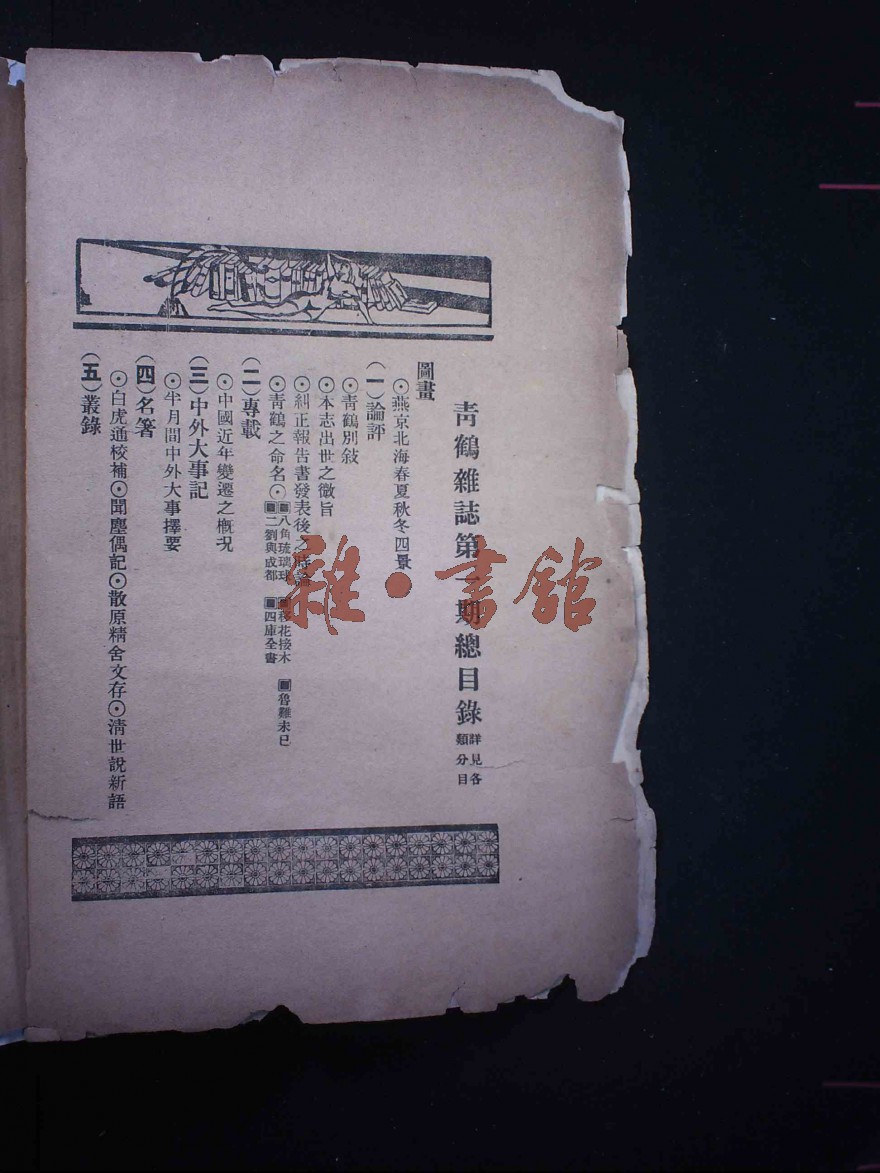 青鶴雜誌第一期總目錄 詳見各類分目
圖畫
⊙燕京北海春夏秋冬四景
(一)論評
⊙青鶴別敍
⊙本志出世之微旨
⊙糾正報告書發表後之時論
⊙青鶴之命名⊙▣八角琉璃球 ▣移花接木 ▣魯難未已
▣二劉與成都 ▣四庫全書
(二)專載
⊙中國近年變遷之概况
(三)中外大事記
⊙半月間中外大事擇要
(四)名箸
⊙白虎通校補⊙聞塵偶記⊙散原精舍文存⊙清世說新語
(五)叢錄
雜·書館